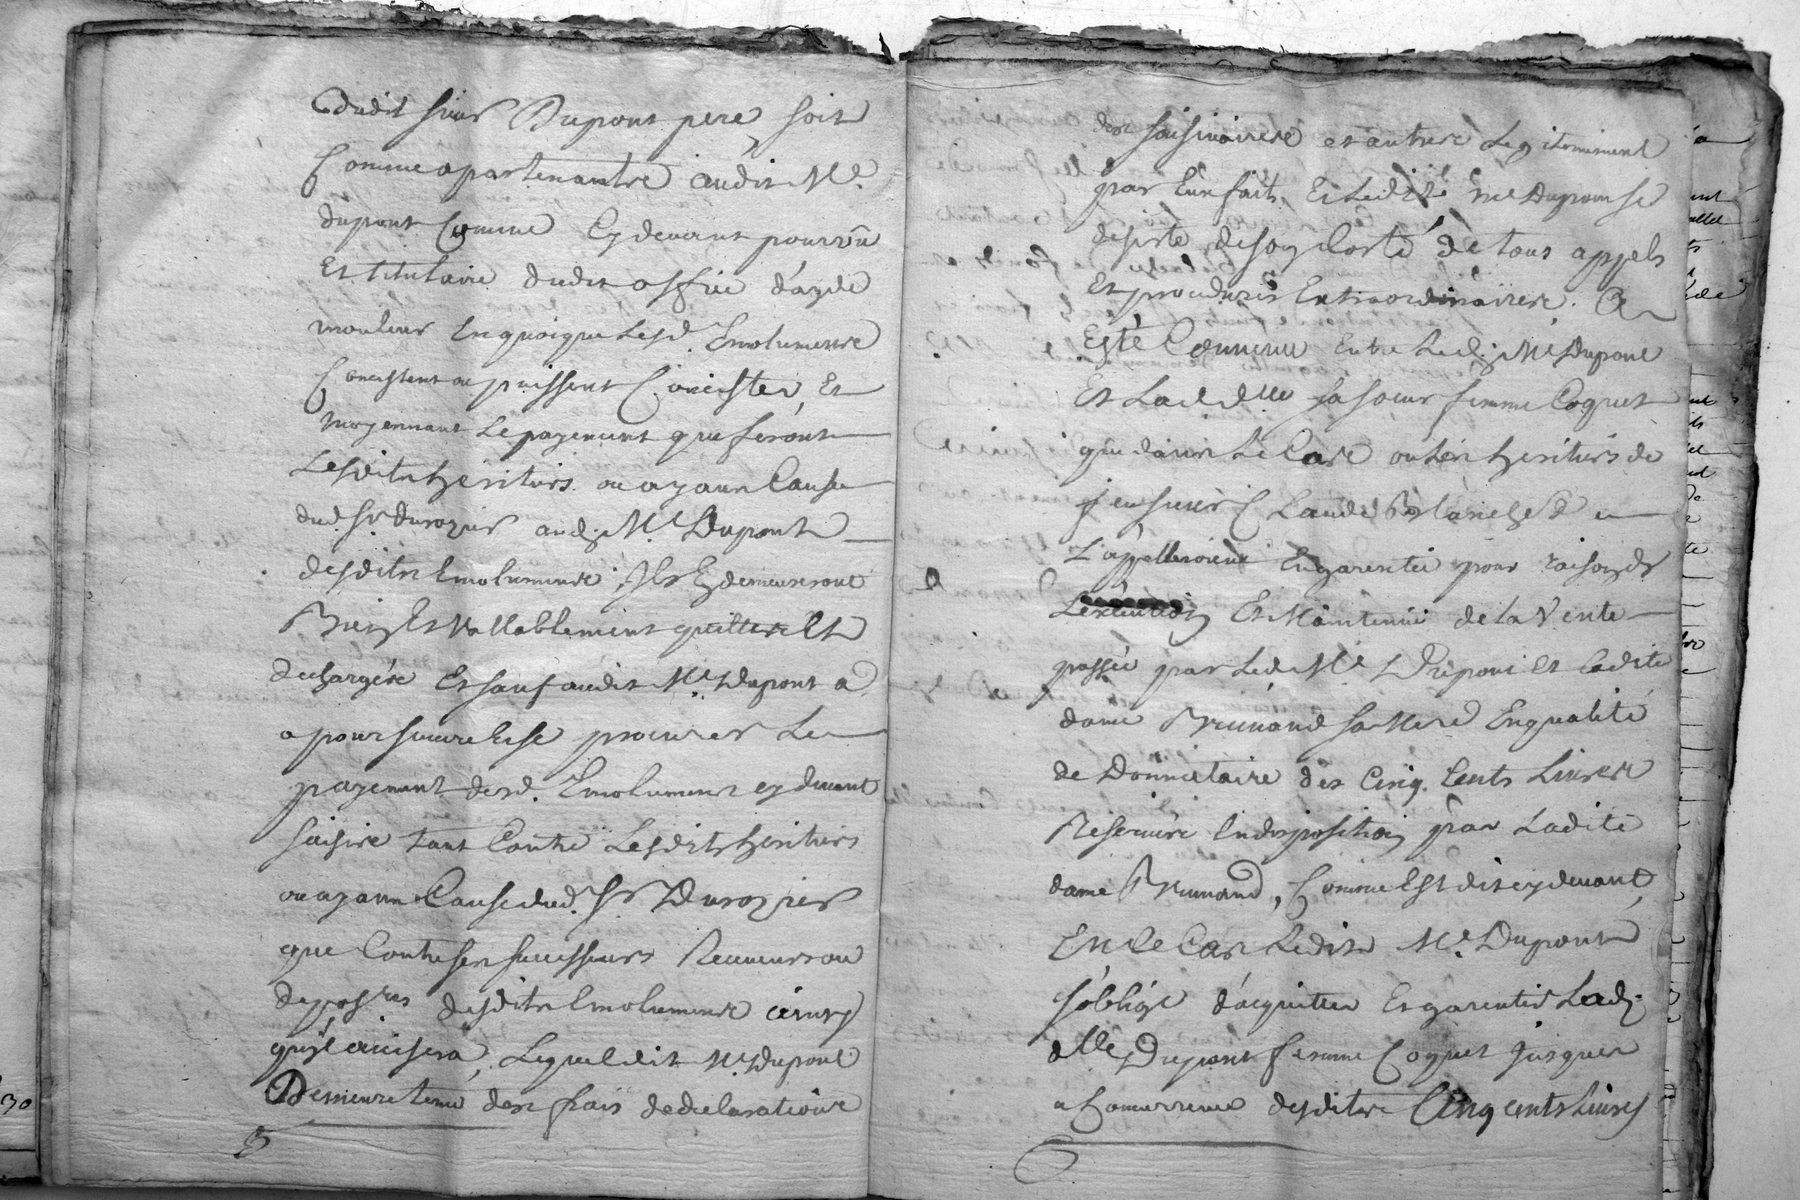 dudit sieur Dupont pere, soit
Comme apartenantes audit Me.
dupont Comme Cy devant pourvû
Et titulaire dudit office d'ayde
mouleur Enquoique Lesd. Emolumens
Concistent ou puissent Concister, Et
moyennant Le payement que feront
Lesdits heritiers ou ayant Cause
dud. Sr. Durozier aud. Me Dupont
desdits Emolumens Ils En demeureront
Bien Et Vallablement quittes Et
dechargés Et sauf audit Me Dupont a
a poursuivre Et se procurer Le
payement desd. Emolumens cy devant
saisis tant Contre Lesdits heritiers
ou ayans Cause dud. Sr Durozier
que Contre ses successeurs Receveurs ou
depos.res desdits Emolumens ainsy
qu'il avisera, Lequel dit Me. Dupont
Demeure tenu des frais de declarations
des saisines et autres Legitimement
par Eux faits, Et Ledit Me Dupont se
desiste de son Costé de tous appels
Et procedures Extraordinaires. A
Esté Convenu Entre Led. Me Dupont
Et Lad. dlle sa soeur femme Coquet
que dans Le Cas ou Les heritiers de
feu sieur Claude Blanchard
L'appelleroient En garentie pour raison de
L'execution Et Maintenue de la Vente
passée par Led. Me Dupont et ladite
dame Brunand sa Mere En qualité
de Donnataire des Cinq Cents Livres
Reservées En disposition par Ladite
dame Brunand, Comme Est dit cy devant,
En ce Cas Ledit Me. Dupont
s'oblige d'acquitter Et garentir Lad.
dlle Dupont femme Coquet jusques
a Concurrence desdites Cinq cents Livres